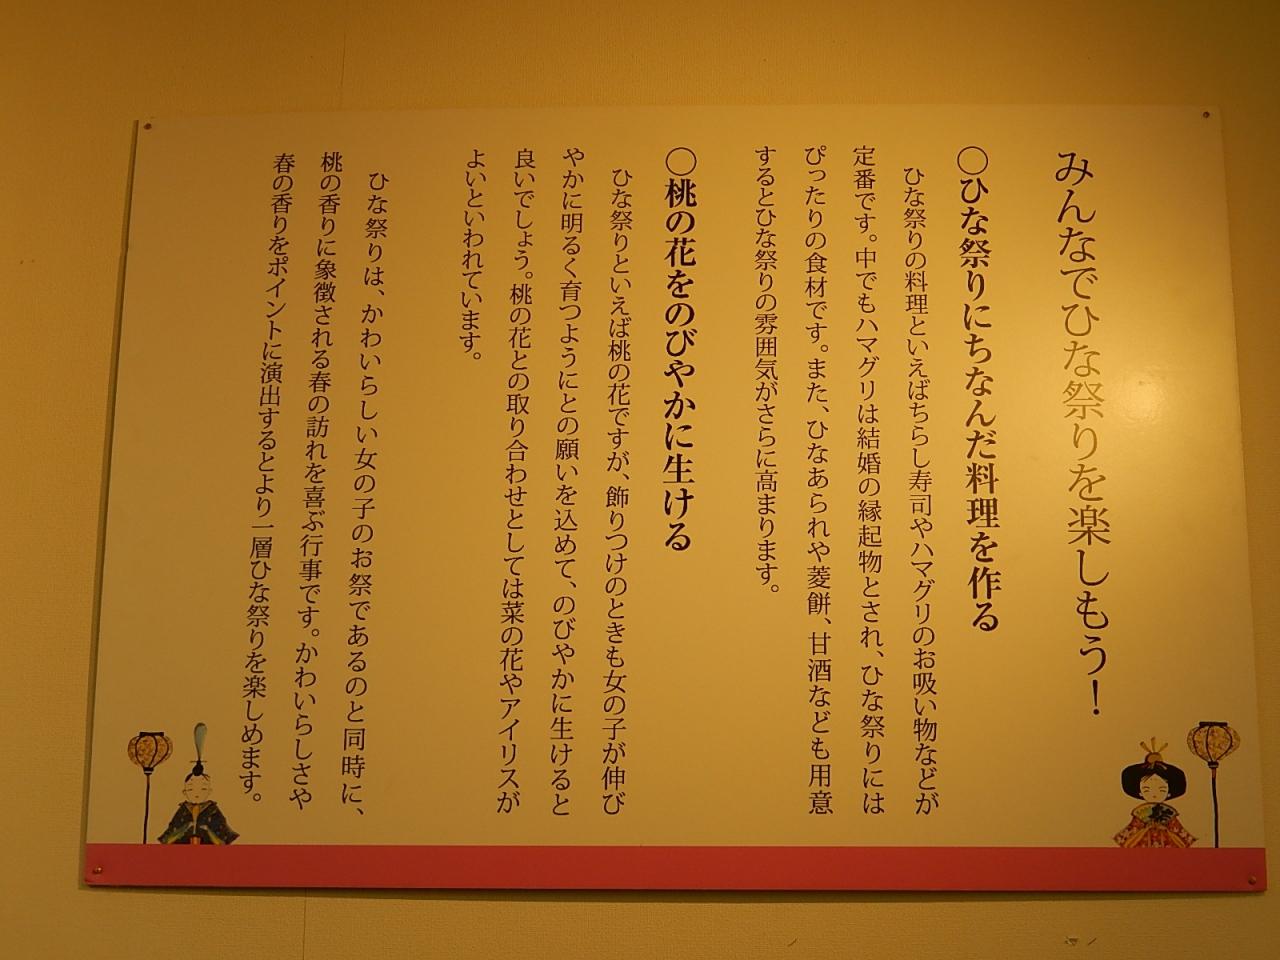 みんなでひな祭りを楽しもう！
○ひな祭りにちなんだ料理を作る
ひな祭りの料理といえばちらし寿司やハマグリのお吸い物などが
定番です。中でもハマグリは結婚の縁起物とされ、ひな祭りには
ぴったりの食材です。また、ひなあられや菱餅、甘酒なども用意
するとひな祭りの雰囲気がさらに高まります。
○桃の花をのびやかに生ける
ひな祭りといえば桃の花ですが、飾りつけのときも女の子が伸び
やかに明るく育つようにとの願いを込めて、のびやかに生けると
良いでしょう。桃の花との取り合わせとしては菜の花やアイリスが
よいといわれています。
ひな祭りは、かわいらしい女の子のお祭であるのと同時に、
桃の香りに象徴される春の訪れを喜ぶ行事です。かわいらしさや
春の香りをポイントに演出するとより一層ひな祭りを楽しめます。